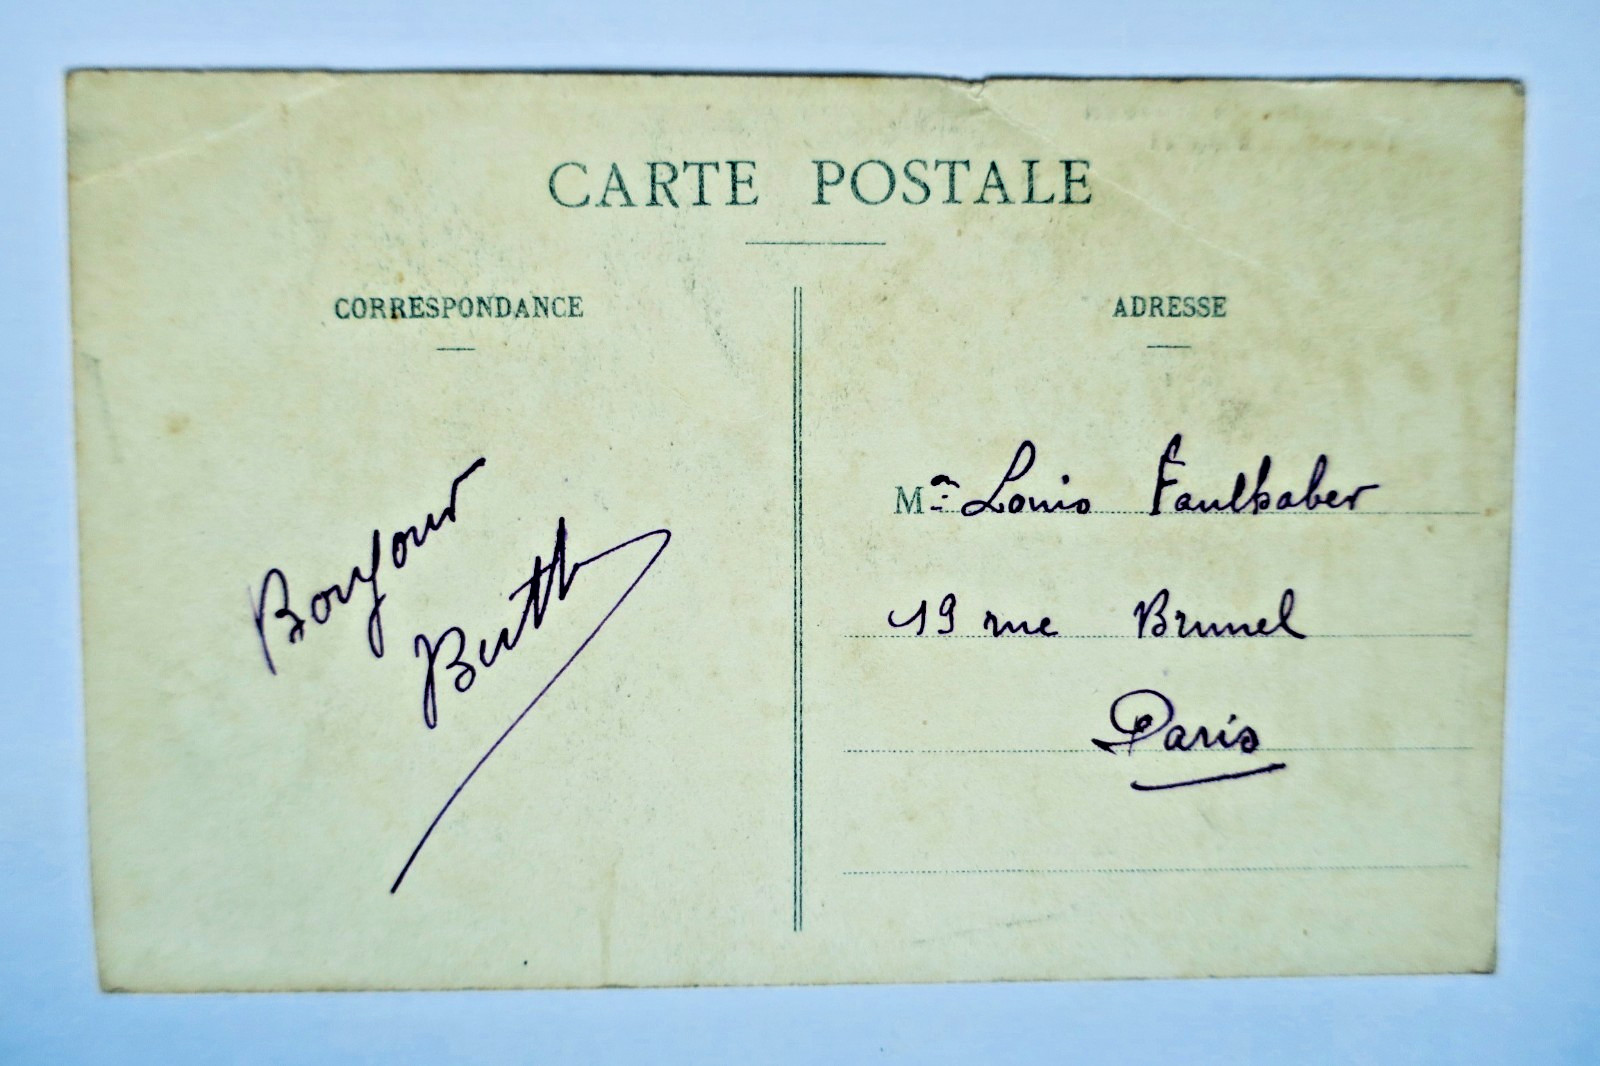 CARTE POSTALE
CORRESPONDANCE
ADRESSE
Bonjour
M Louis Faulhaber
19 rue Brunel
Paris